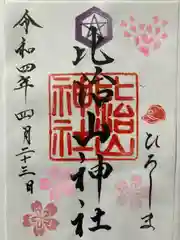 比治山神社
比治山神社
ひろしま
令和四年四月二十三日